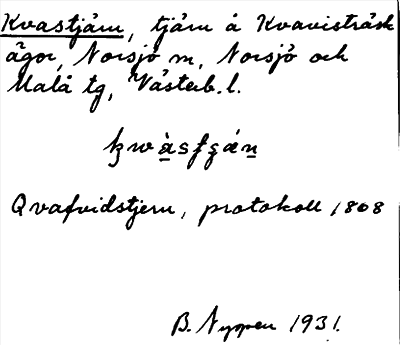 Kvastjärn, tjärn å Kvavisträsk
ägor, Norsjö sn, Norsjö och
Malå tg, Västerb. l.
Qvafvidstjern, protokoll 1808
B. Nyman 1931.